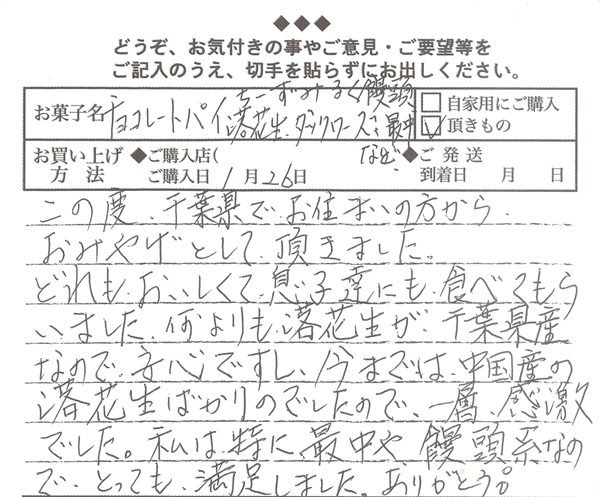 ◆◆◆
どうぞ、お気付きの事やご意見・ご要望等を
ご記入のうえ、切手を貼らずにお出しください。
お菓子名 チョコレートパイ ちーずみるく饅頭 落花生、ダックワーズ、最中 など
□自家用にご購入
☑頂きもの
お買い上げ方法 ◆ご購入店(
ご購入日 1月26日
◆ご発送
到着日 月 日
この度、千葉県でお住まいの方から、
おみやげとして、頂きました。
どれも、おいしくて、息子達にも、食べてもら
いました。何よりも、落花生が、千葉県産
なので、安心ですし、今までは、中国産の
落花生ばかりのでしたので、一層、感激
でした。私は、特に、最中や、饅頭系なの
で、とっても、満足しました。ありがとう。